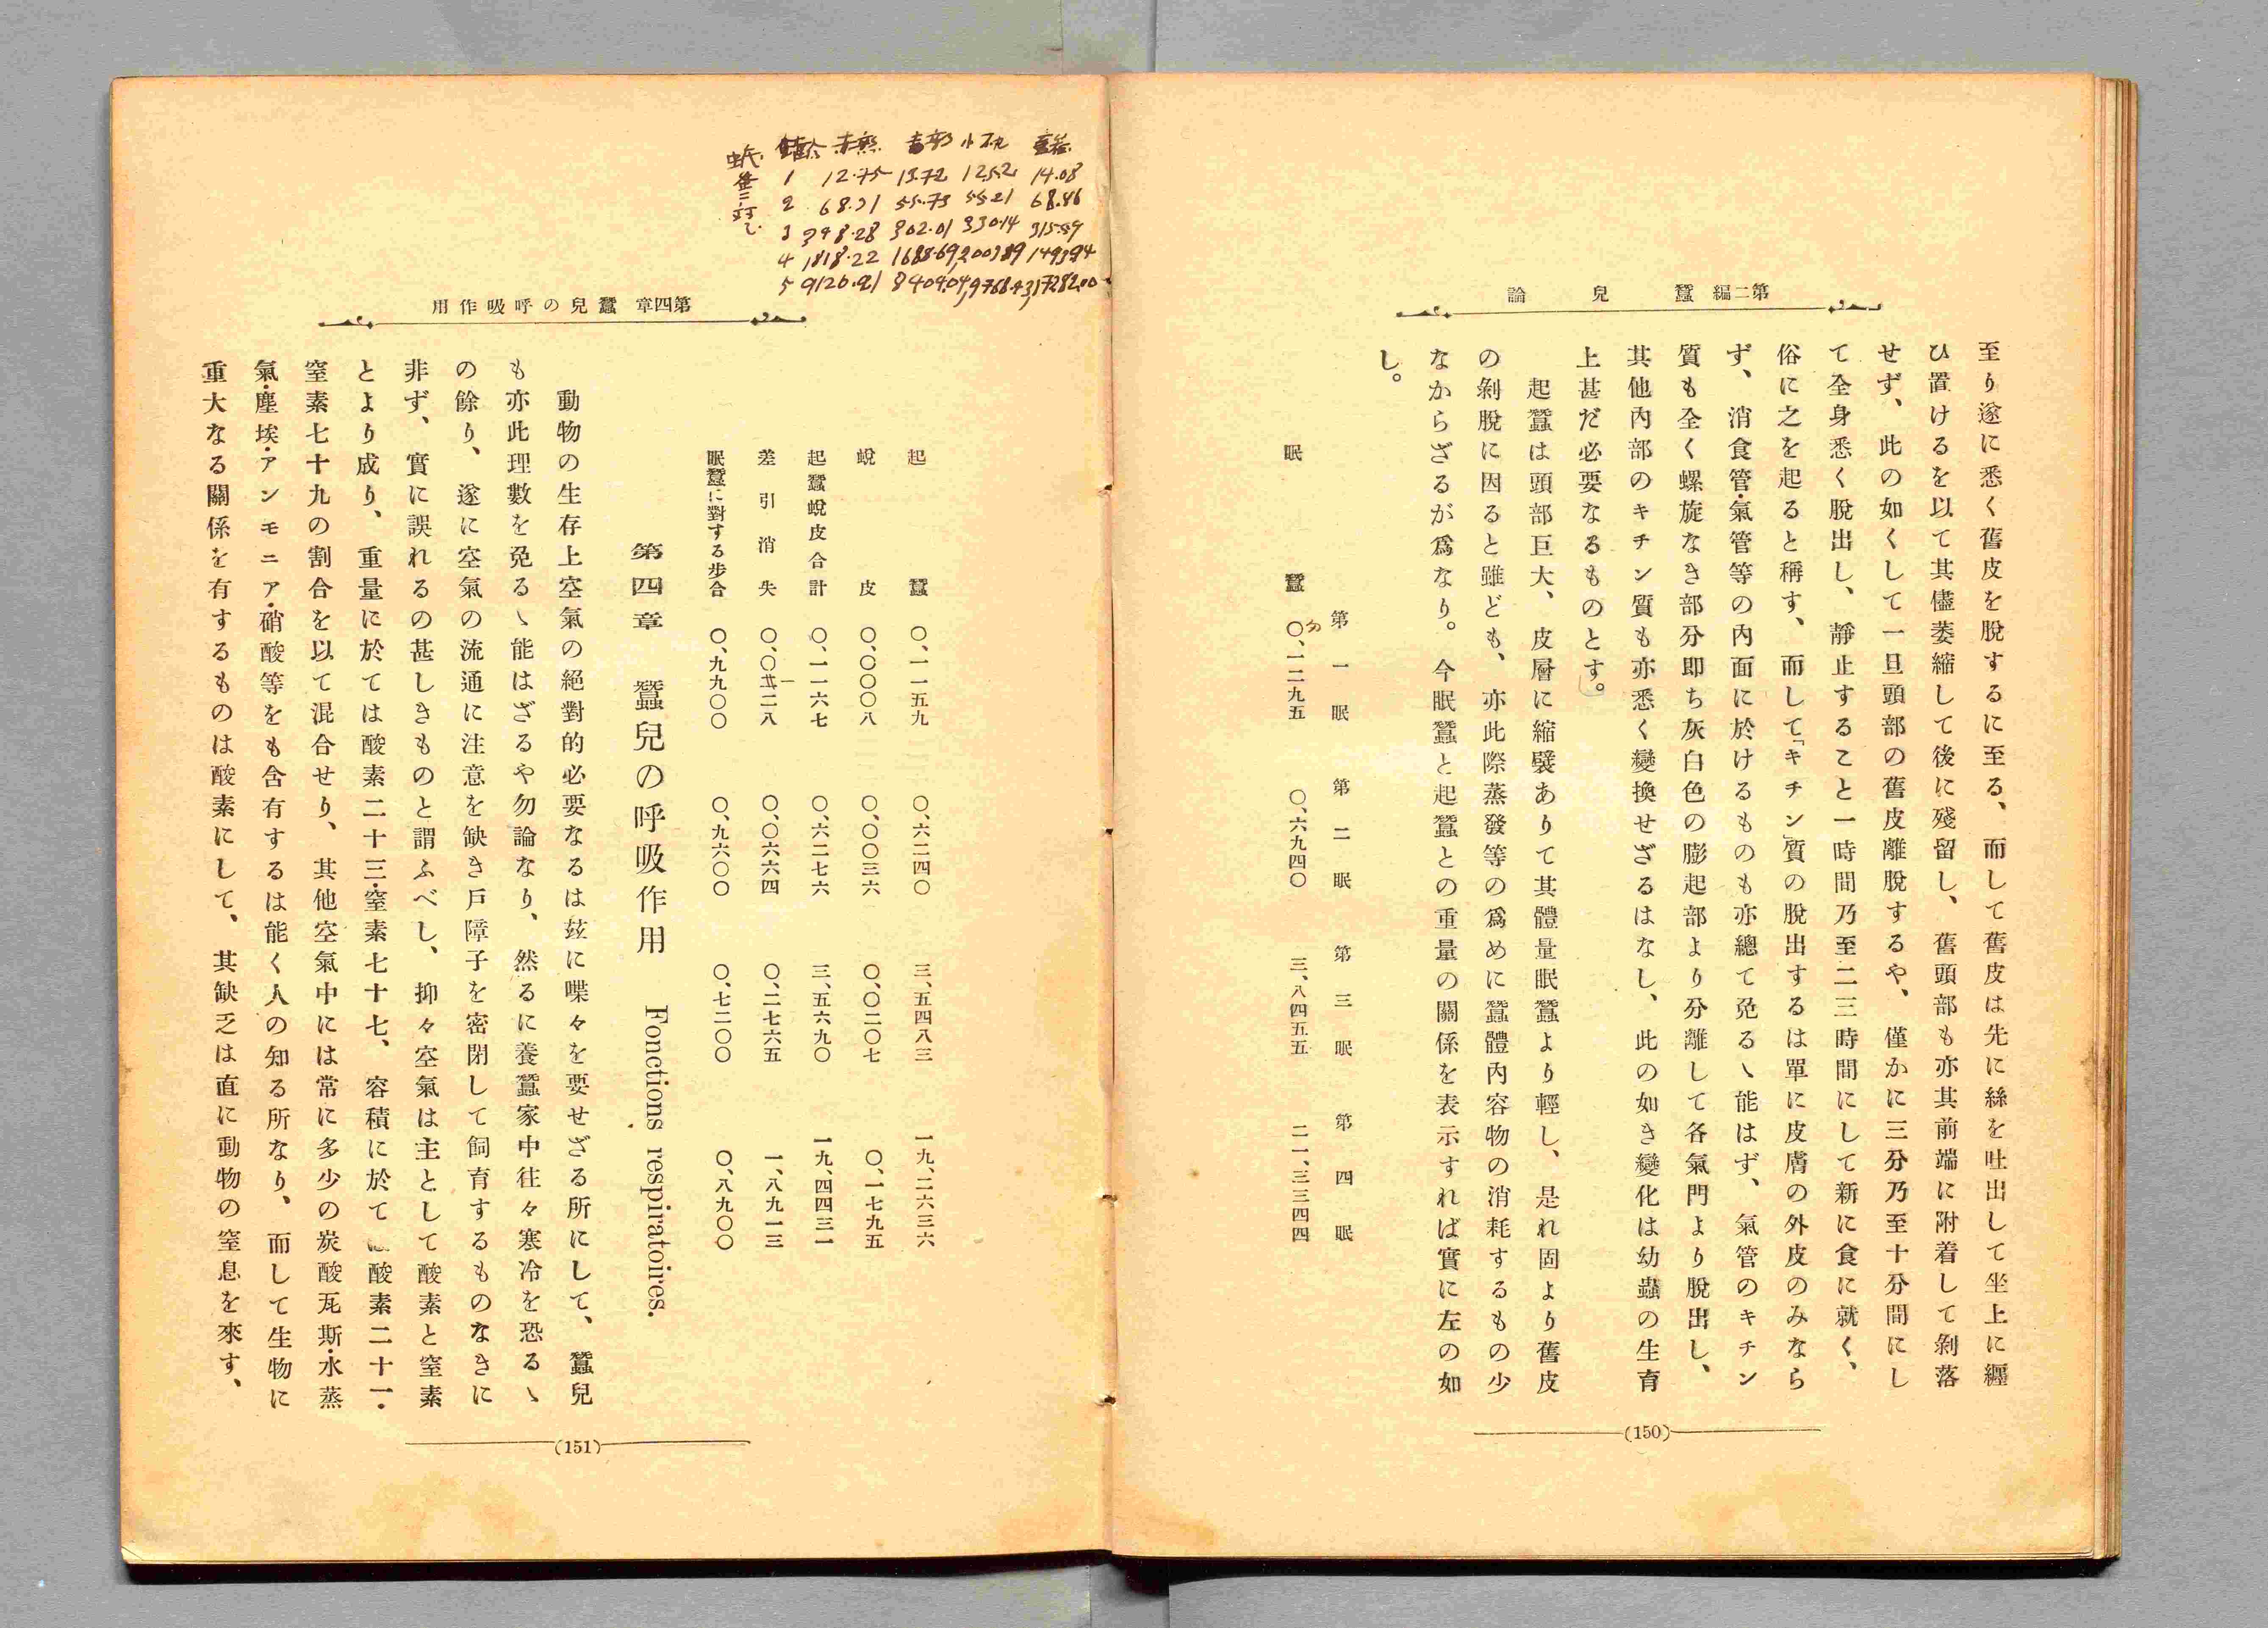 第二編　蠶兒論
至り遂に悉く舊皮を脫するに至る、而して舊皮は先に絲を吐出して坐上に纒
ひ置けるを以て其儘萎縮して後に殘留し、舊頭部も亦其前端に附着して剝落
せず、此の如くして一旦頭部の舊皮離脫するや、僅かに三分乃至十分間にし
て全身悉く脫出し、靜止すること一時間乃至二三時間にして新に食に就く、
俗に之を起ると稱す、而して「キチン」質の脫出するは單に皮膚の外皮のみなら
ず、消食管・氣管等の內面に於けるものも亦總て免るヽ能はず、氣管のキチン
質も全く螺旋なき部分即ち灰白色の膨起部より分離して各氣門より脫出し、
其他內部のキチン質も亦悉く變換せざるはなし、此の如き變化は幼蟲の生育
上甚だ必要なるものとす。
起蠶は頭部巨大、皮層に縮襞ありて其體量眠蠶より輕し、是れ固より舊皮
の剝脫に因ると雖ども、亦此際蒸發等の爲めに蠶體內容物の消耗するもの少
なからざるが爲なり。今眠蠶と起蠶との重量の關係を表示すれば實に左の如
し。
第一眠　第二眠　第三眠　第四眠
眠蠶　〇、一二九五　〇、六九四〇　三、八四五五　二一、三三四四
分
(150)
第四章　蠶兒の呼吸作用
1 12.75 13.72 12.52 14.08
2 68.31 55.73 55.21 68.46
3 398.28 302.01 330.14 315.59
4 1818.22 1688.69 2003.89 1493.94
5 9120.21 8404.04 9768.43 17282.00
起蠶　〇、一一五九　〇、六二四〇　三、五四八三　一九、二六三六
蛻皮　〇、〇〇〇八　〇、〇〇三六　〇、〇二〇七　〇、一七九五
起蠶蛻皮合計　〇、一一六七　〇、六二七六　三、五六九〇　一九、四四三一
差引消失　〇、〇一二八　〇、〇六六四　〇、二七六五　一、八九一三
眠蠶に對する步合　〇、九九〇〇　〇、九六〇〇　〇、七二〇〇　〇、八九〇〇
第四章　蠶兒の呼吸作用　Fonctions respiratoires.
動物の生存上空氣の絕對的必要なるは玆に喋々を要せざる所にして、蠶兒
も亦此理數を免るヽ能はざるや勿論なり、然るに養蠶家中往々寒冷を恐るヽ
の餘り、遂に空氣の流通に注意を缺き戶障子を密閉して飼育するものなきに
非ず、實に誤れるの甚しきものと謂ふべし、抑々空氣は主として酸素と窒素
とより成り、重量に於ては酸素二十三・窒素七十七、容積に於ては酸素二十一・
窒素七十九の割合を以て混合せり、其他空氣中には常に多少の炭酸瓦斯・水蒸
氣・塵埃・アンモニア・硝酸等をも含有するは能く人の知る所なり、而して生物に
重大なる關係を有するものは酸素にして、其缺乏は直に動物の窒息を來す、
(151)